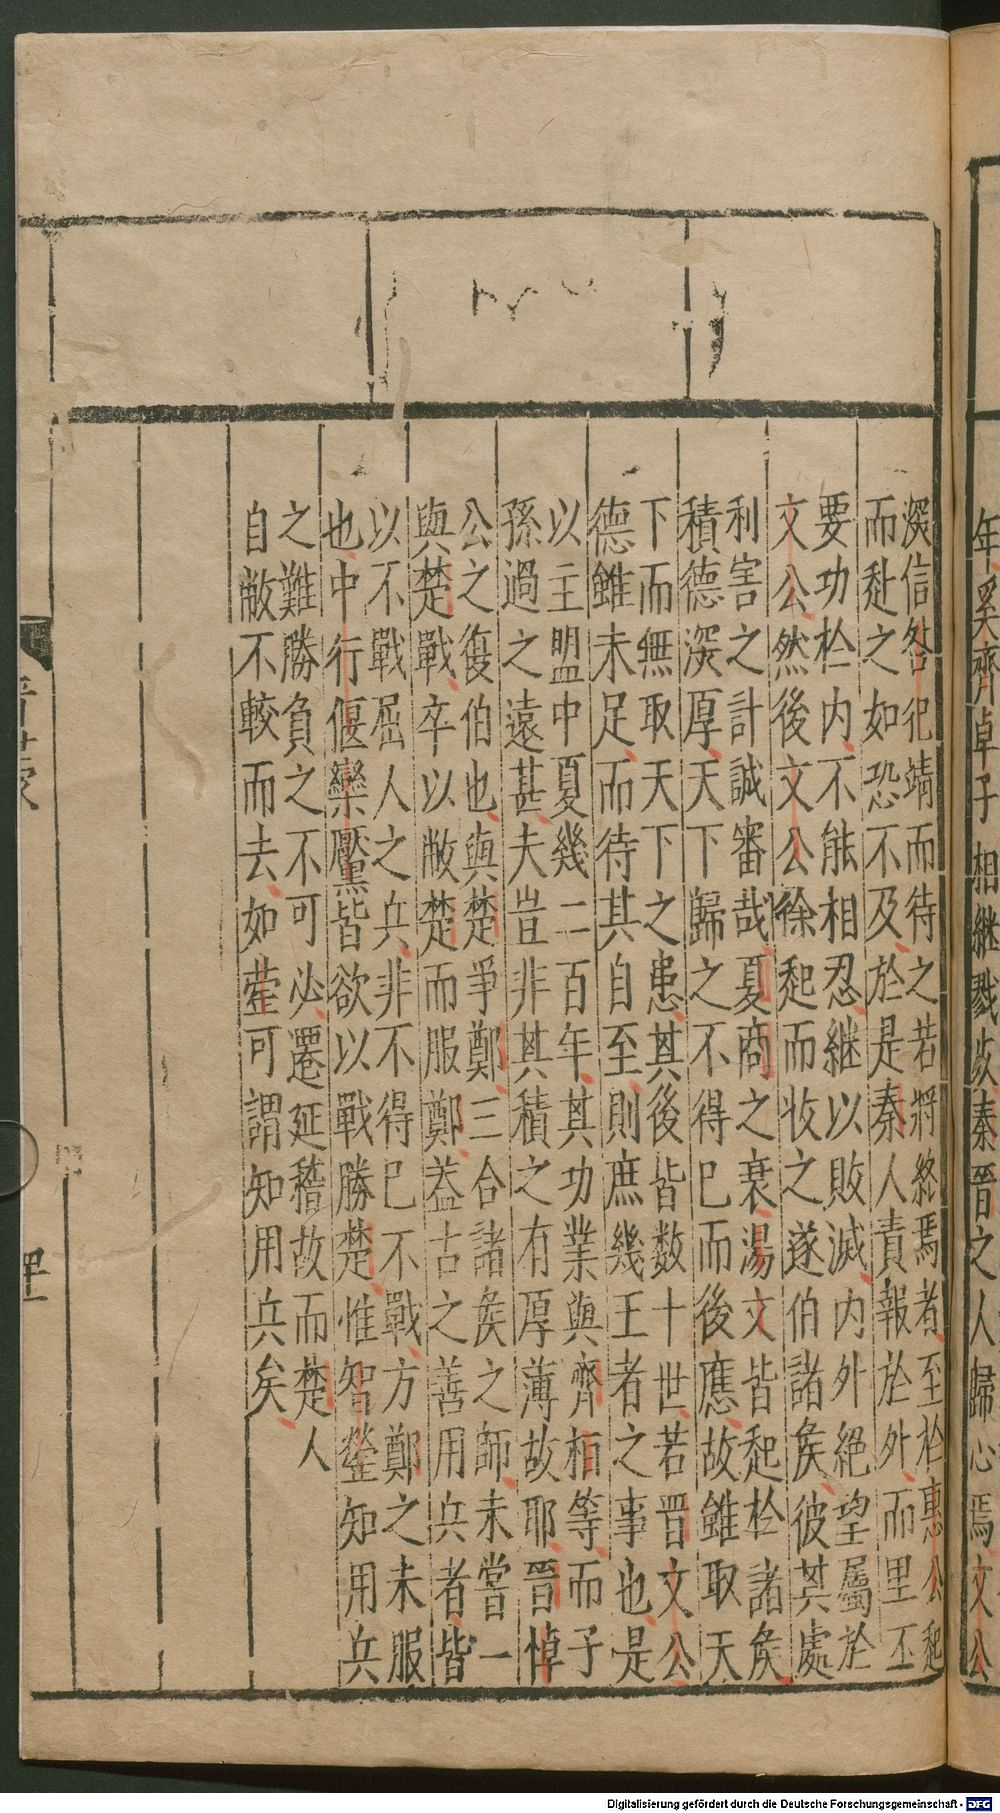 年奚齊卓子相継戮歿秦晋之人歸心焉文公
深信咎犯靖而待之若將終焉者至於惠公起
而赴之如恐不及於是秦人責報於外而里丕
要功於内不能相忍継以敗滅内外絕望屬於
文公然後文公徐起而收之遂伯諸侯彼其處
利害之計誠審哉夏商之衰湯文皆起於諸侯
積德深厚天下歸之不得已而後應故雖取天
下而無取天下之患其後皆数十世若晋文公
德雖未足而待其自至則庶幾王者之事也是
以主盟中夏幾二百年其功業與齊桓等而子
孫過之遠甚夫豈非其積之有厚薄故耶晋悼
公之復伯也與楚爭鄭三合諸侯之師未嘗一
與楚戰卒以敝楚而服鄭葢古之善用兵者皆
以不戰屈人之兵非不得已不戰方鄭之未服
也中行偃欒黶皆欲以戰勝楚惟智罃知用兵
之難勝負之不可必遷延稽故而楚人
自敝不較而去如罃可謂知用兵矣
Digitalisierung gefördert durch die Deutsche Forschungsgemeinschaft - DFG